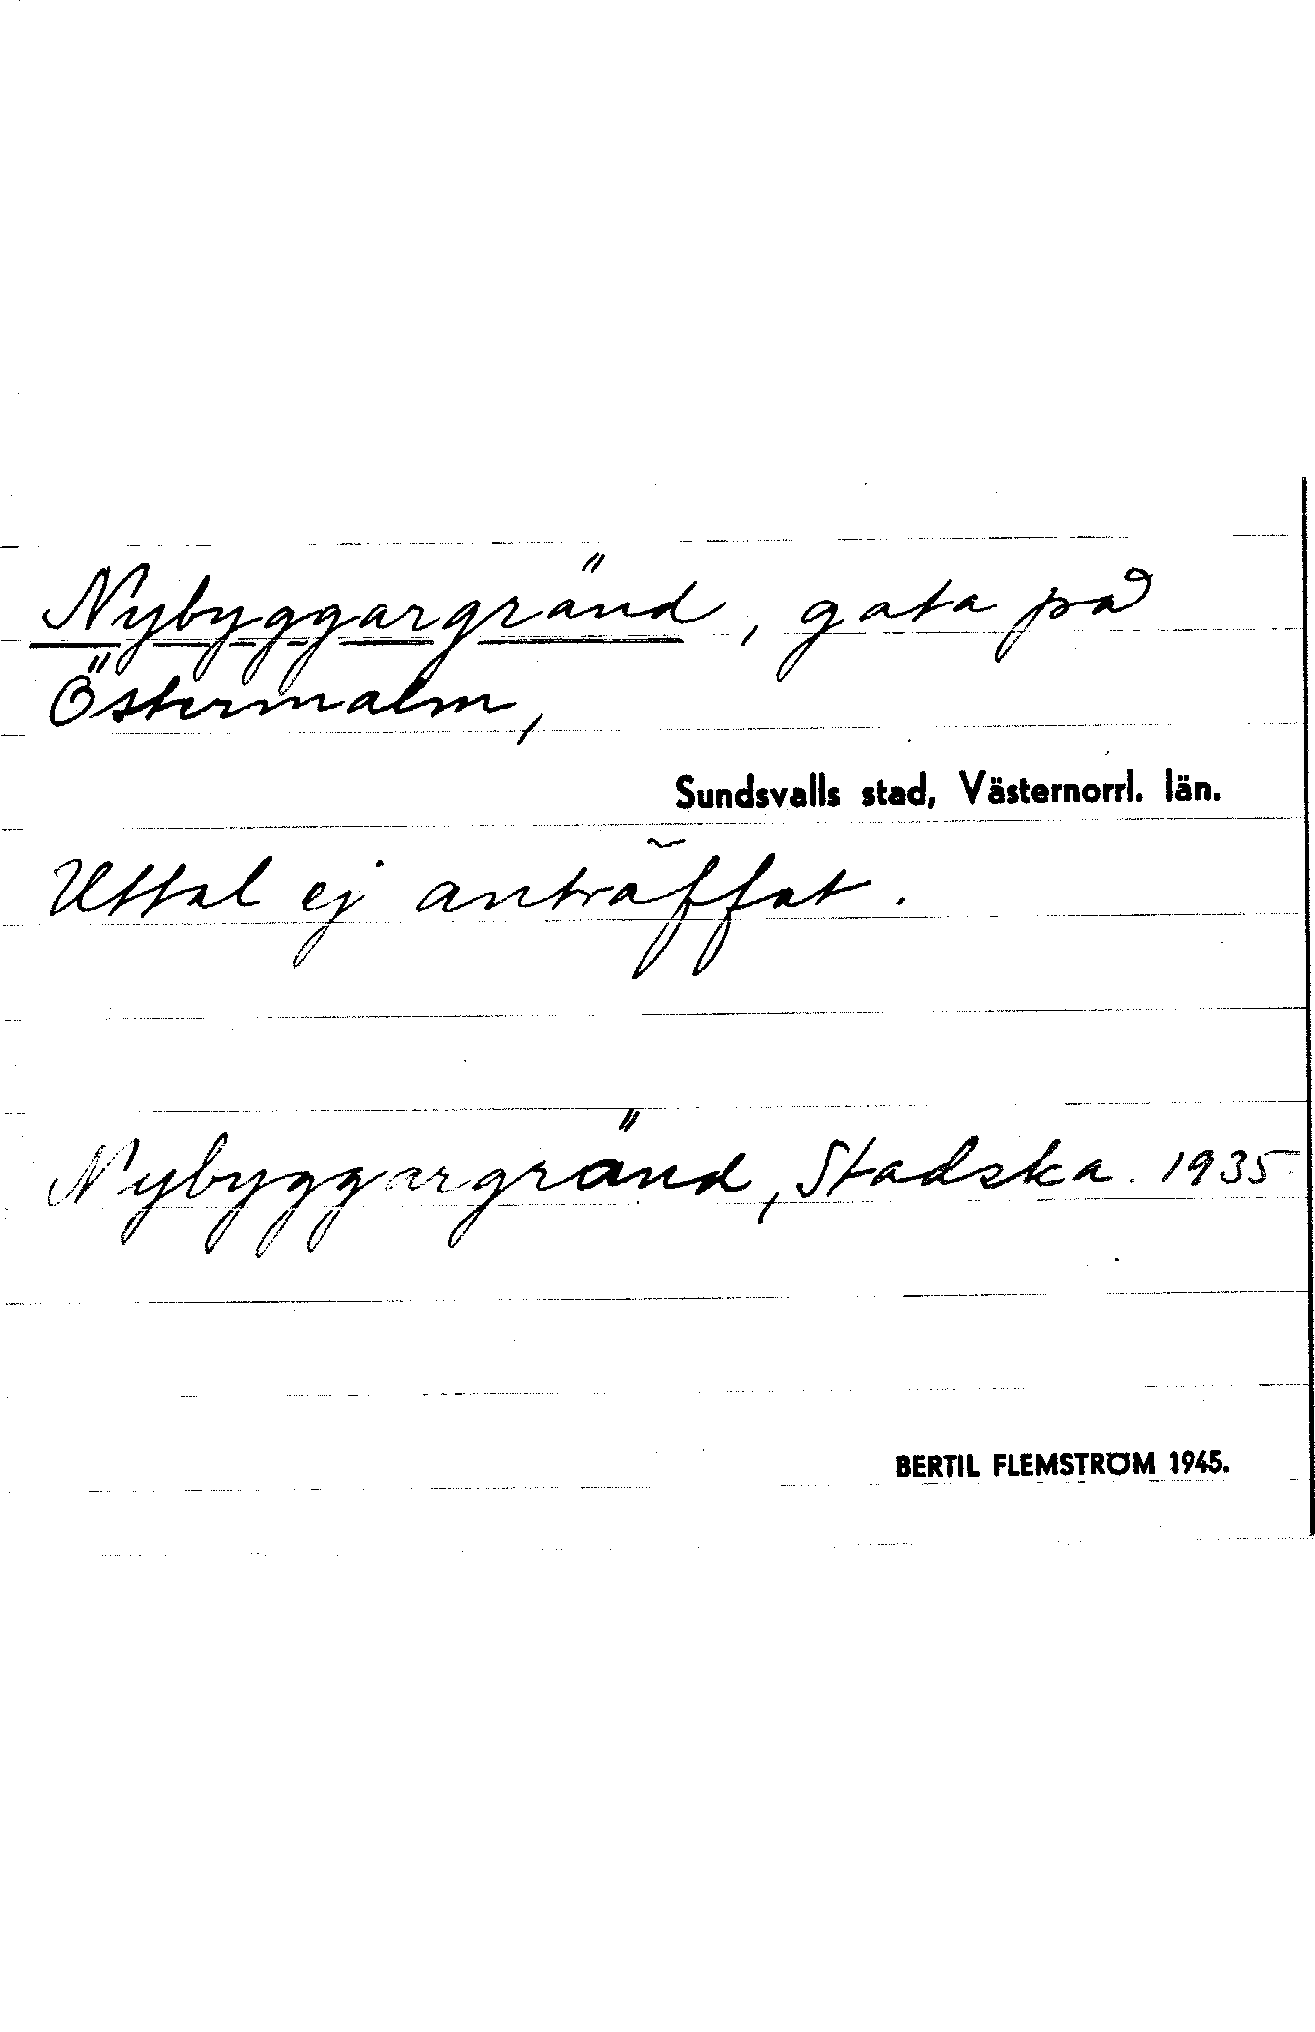 Nybyggargränd, gata på
Östermalm,
Sundsvalls stad, Västernorrl. län.
Uttal ej anträffat.
Nybyggargränd, Stadska. 1935
BERTIL FLEMSTRÖM 1945.